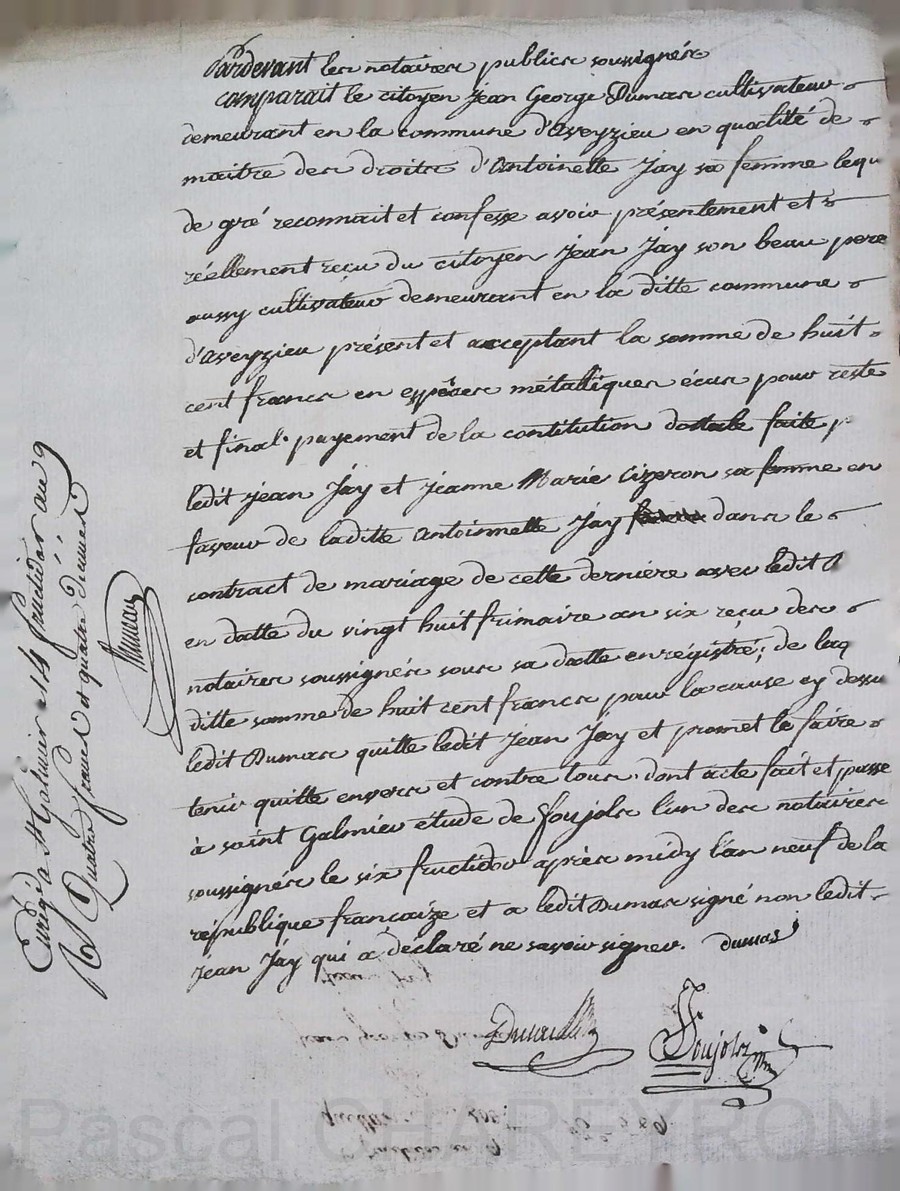 Pardevant les notaires publics soussignés
comparait le citoyen Jean George Dumas cultivateur
demeurant en la commune d'Aveyzieu en qualité de
maitre des droits d'Antoinette Jay sa femme lequ
de gré reconnait et confesse avoir présentement et
réellement reçu du citoyen Jean Jay son beau pere
aussy cultivateur demeurant en la ditte commune
d'Aveyzieu présent et acceptant la somme de huit
cent francs en espèces métalliques écus pour reste
et final payement de la contitution dottale faite p
ledit Jean Jay et Jeanne Marie Cizeron sa femme en
faveur de laditte Antoinnette Jay dans le
contract de mariage de cette dernière avec ledit D
en datte du vingt huit frimaire an six reçu des
notaires soussignés sous sa datte enregistré; de laq
ditte somme de huit cent francs pour la cause cy dessu
ledit Dumas quitte ledit Jean Jay et promet le faire
tenir quitte envers et contre tous. dont acte fait et passé
à saint Galmier étude de Foujols l'un des notaires
soussignés le six fructidor après midy l'an neuf de la
république francaize et a ledit Dumas signé non ledit
Jean Jay qui a déclaré ne savoir signer. Dumas
Foujols
Enrgé à St Galmier le 14 fructidor an 9
R Quatre francs et quatre dixmes
Pascal CHAREYRON